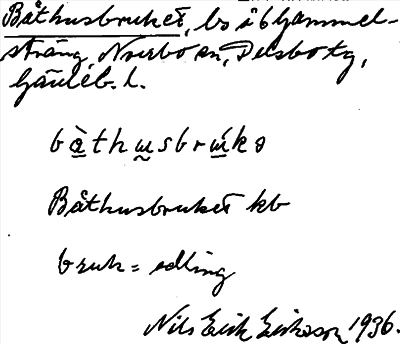 Båthusbruket, bs i 6 Gammel-
sträng, Norrbo sn, Delsbo tg,
Gävleb. l.
bàthusbrúkə
Båthusbruket kb
bruk = odling
Nils Erik Eriksson 1936.